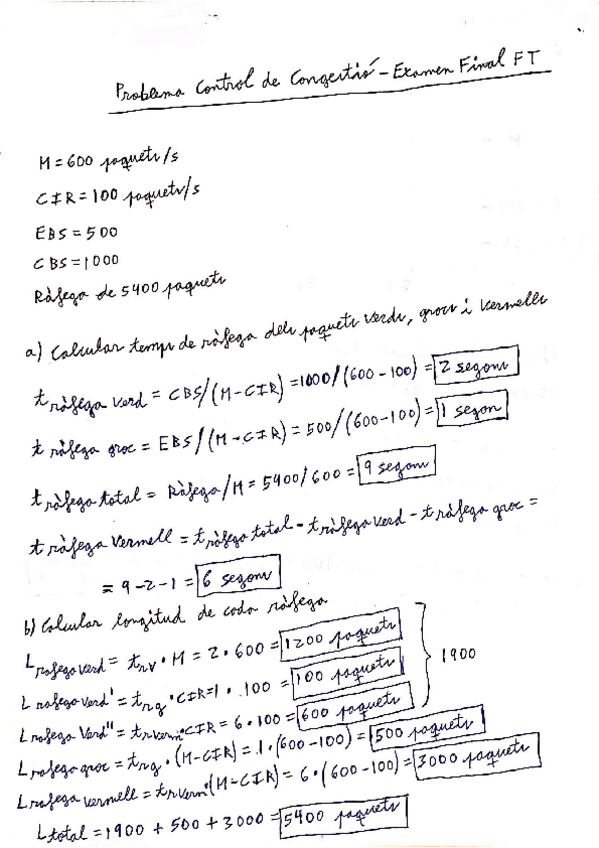 Problema Control de Congestió - Examen Final FT
M = 600 paquets/s
CIR = 100 paquets/s
EBS = 500
CBS = 1000
Ràfega de 5400 paquets
a) Calcular temps de ràfega dels paquets verds, grocs i vermells
t ràfega verd = CBS/(M-CIR) = 1000/(600-100) = 2 segons
t ràfega groc = EBS/(M-CIR) = 500/(600-100) = 1 segon
t ràfega total = Ràfega/M = 5400/600 = 9 segons
t ràfega vermell = t ràfega total - t ràfega verd - t ràfega groc =
= 9-2-1 = 6 segons
b) Calcular longitud de cada ràfega
L rafega verd = t r.v · M = 2 · 600 = 1200 paquets
L rafega verd' = t r.g · CIR = 1 · 100 = 100 paquets
L rafega verd'' = t r.verm · CIR = 6 · 100 = 600 paquets
1900
L rafega groc = t r.g · (M-CIR) = 1 · (600-100) = 500 paquets
L rafega vermell = t r.verm · (M-CIR) = 6 · (600-100) = 3000 paquets
L total = 1900 + 500 + 3000 = 5400 paquets